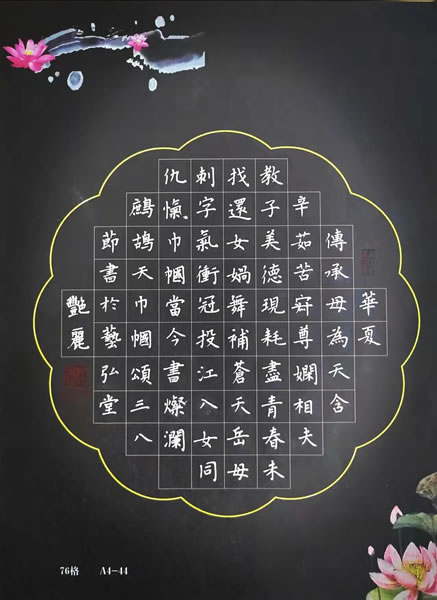 華夏
傳承母為天含
辛茹苦尊嫻相夫
教子美德現耗盡青春未
找還女媧舞補蒼天岳母
刺字氣衝冠投江入女同
仇愾巾幗當今書燦瀾
鷓鴣天巾幗頌三八
節書於藝弘堂
豔麗
76格 A4-44